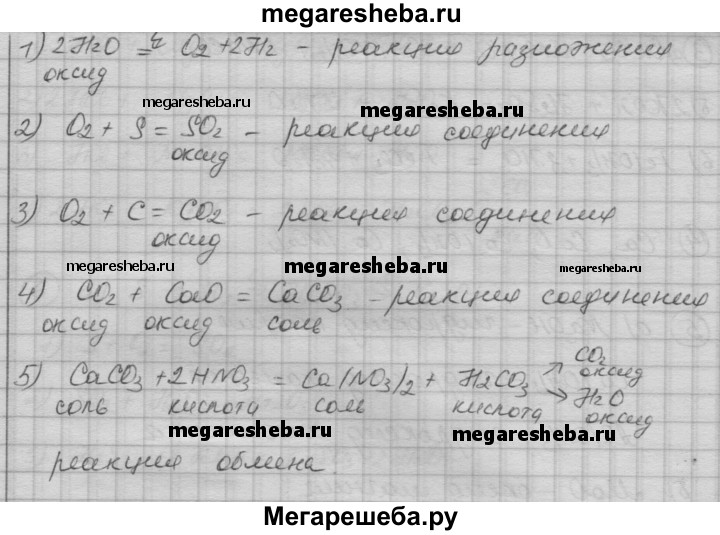 megaresheba.ru
1) 2H2O =^ч O2 + 2H2 - реакция разложения
оксид
megaresheba.ru megaresheba.ru
2) O2 + S = SO2 - реакция соединения
оксид
3) O2 + C = CO2 - реакция соединения
оксид
megaresheba.ru megaresheba.ru megaresheba.ru
4) CO2 + CaO = CaCO3 - реакция соединения
оксид оксид соль
5) CaCO3 + 2HNO3 = Ca(NO3)2 + H2CO3 ↗ CO2 оксид ↘ H2O оксид
соль кислота соль кислота
megaresheba.ru megaresheba.ru
реакция обмена
Мегарешеба.ру